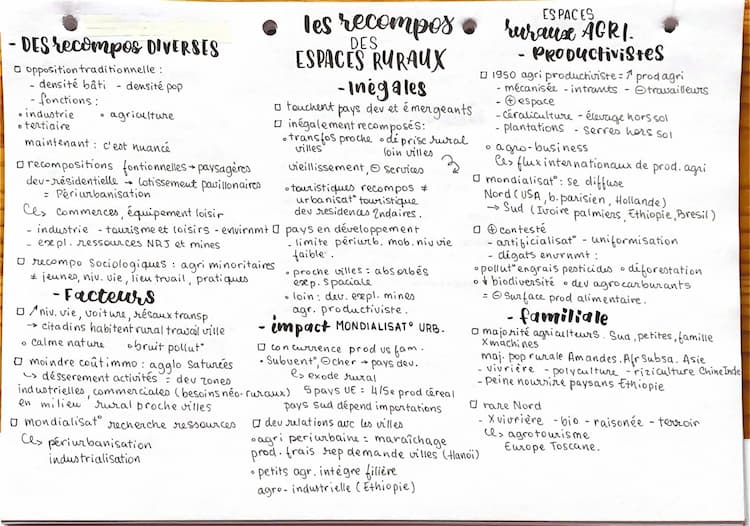 les recompos
DES
ESPACES RURAUX
- DES recompos DIVERSES
□ opposition traditionnelle :
- densité bâti - densité pop
- fonctions :
• industrie • agriculture
• tertiaire
maintenant : c'est nuancé
□ recompositions fontionnelles → paysagères
dev-résidentielle → lotissement pavillonaires
= Périurbanisation
↳ commerces, équipement loisir
- industrie - tourisme et loisirs - environmt
- expl. ressources NRJ et mines
□ recompo Sociologiques : agri minoritaires
≠ jeunes, niv. vie, lieu travail, pratiques
- Facteurs
□ ↗ niv. vie, voiture, résaux transp
→ citadins habitent rural travail ville
• calme nature • bruit pollut°
□ moindre coût immo : agglo saturées
↳ désserement activités = dev zones
industrielles, commerciales (besoins néo-ruraux)
en milieu rural proche villes
□ mondialisat° recherche ressources
↳ périurbanisation
industrialisation
- Inégales
□ touchent pays dev et émergeants
□ inégalement recomposés :
• transfos proche villes
• déprise rural loin villes
vieillissement, ⊖ services
• touristiques recompos ≠
urbanisat° touristique
des residences 2ndaires.
□ pays en développement
- limite périurb. mob. niv vie
faible.
• proche villes = absorbés
exp. spaciale
• loin : dev. expl. mines
agr. productiviste.
- impact MONDIALISAT° URB.
□ concurrence prod vs fam.
• Subvent°, ⊖ cher → pays dev.
↳ exode rural
5 pays UE = 4/5e prod céréal
pays sud dépend importations
□ dev relations avc les villes
• agri periurbaine = maraîchage
prod. frais rep demande villes (Hanoï)
• petits agr. intégre filière
agro-industrielle (Ethiopie)
ESPACES
ruraux AGRI.
- PRODUCTIVISTES
□ 1950 agri productiviste = ↗ prod agri
- mécanisée - intrants - ⊖ travailleurs
- ⊕ espace
- céréaliculture - élevage hors sol
- plantations - serres hors sol
• agro-business
↳ flux internationaux de prod. agri
□ mondialisat° : se diffuse
Nord (USA, b. parisien, Hollande)
→ Sud (Ivoire palmiers, Ethiopie, Bresil)
□ ⊕ contesté
- artificialisat° - uniformisation
- dégats envrnmt :
• pollut° engrais pesticides • déforestation
• ↓ biodiversité • dev agrocarburants
= ⊖ surface prod alimentaire.
- familiale
□ majorité agriculteurs Sud, petites, famille
X machines
maj. pop rurale Amandes. Afr Subsa. Asie
- vivrière - polyculture - riziculture Chine Inde
- Peine nourrire paysans Ethiopie
□ rare Nord
- X vivrière - bio - raisonée - terroir
↳ agrotourisme
Europe Toscane.